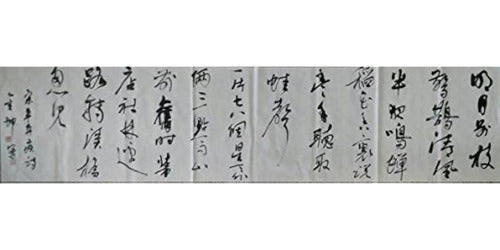 明月别枝
驚鵲清風
半夜鳴蟬
稻花香裏説
豐年聽取
蛙聲
一片七八個星天外
兩三點雨山
前舊時茅
店社林邊
路轉溪橋
忽見